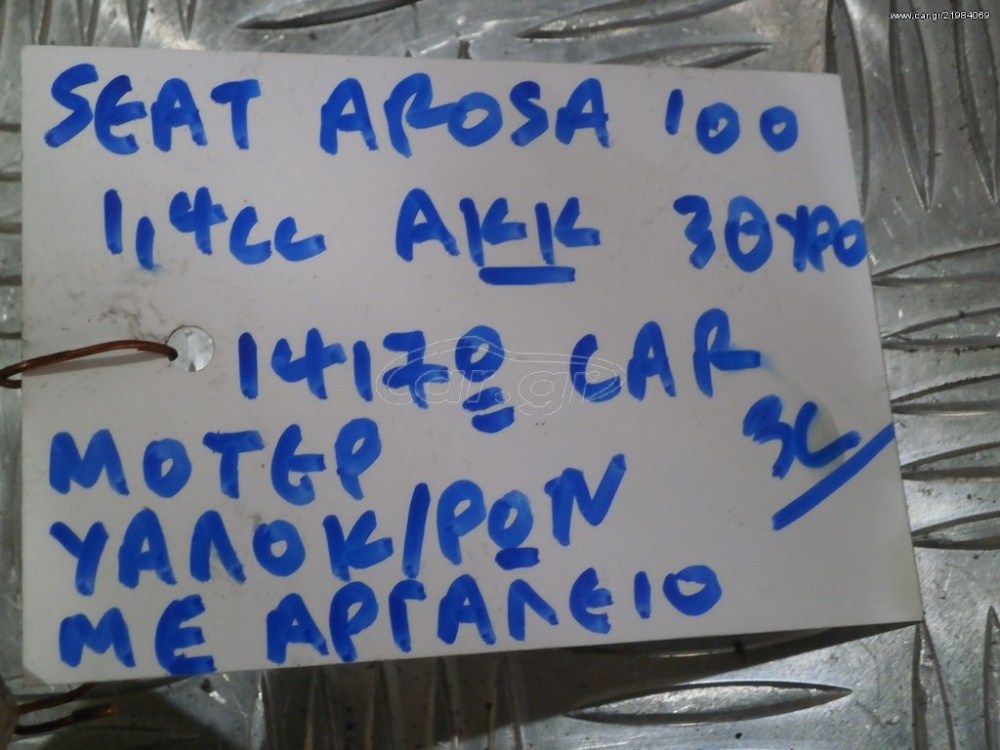 www.car.gr/21984069
SEAT AROSA 100
1,4cc AKK 3ΘΥΡΟ
14170 CAR
3C
ΜΟΤΕΡ
ΥΑΛΟΚ/ΡΩΝ
ΜΕ ΑΡΓΑΛΕΙΟ
car.gr